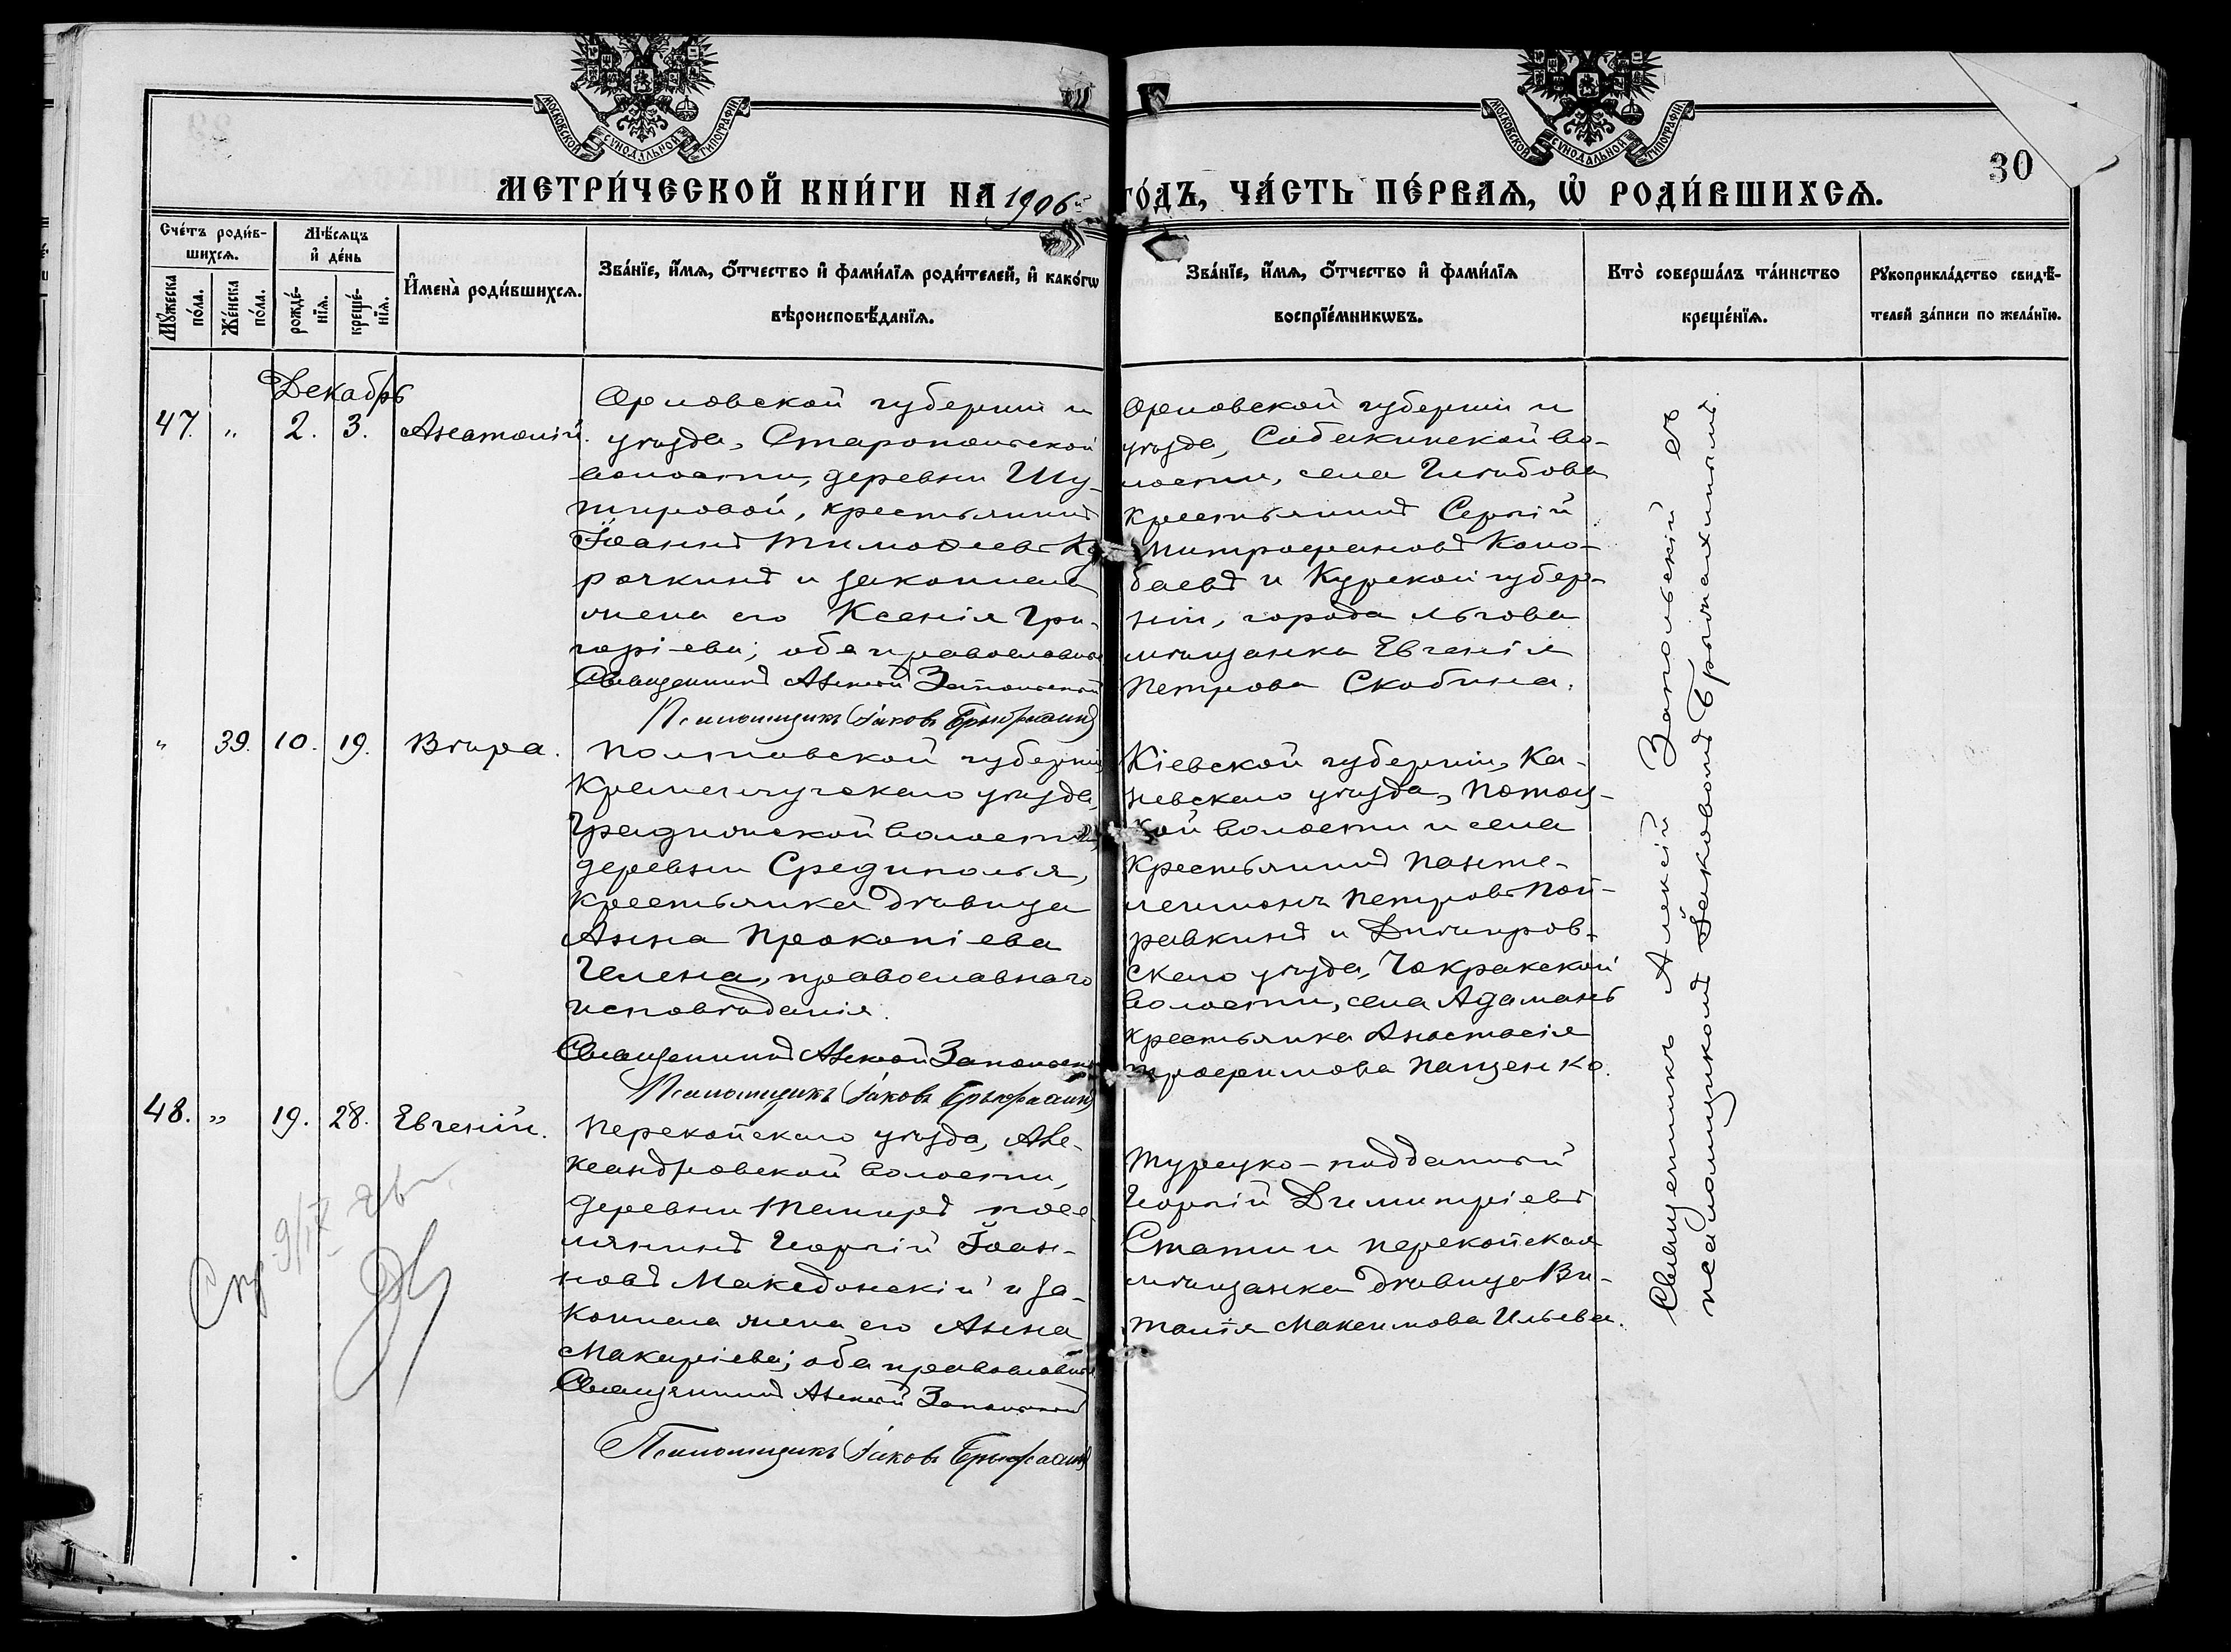 МОСКОВСКОЙ СѴНОДАЛЬНОЙ ТИПОГРАФІИ
МОСКОВСКОЙ СѴНОДАЛЬНОЙ ТИПОГРАФІИ
30
МЕТРИ́ЧЕСКОЙ КНИ́ГИ НА 1906й ГО́ДЪ, ЧА́СТЬ ПЕ́РВАѦ, Ѡ҆ РОДИ́ВШИХСѦ.
Сче́тъ роди́в-
шихсѧ.
Мѣ́сѧцъ
и҆ де́нь
Мꙋ́жеска
по́ла.
Же́нска
по́ла.
рожде́-
нїѧ.
креще́-
нїѧ.
И҆мена̀ роди́вшихсѧ.
Зва́нїе, и҆́мѧ, ѻ҆́тчество и҆ фами́лїѧ роди́телей, и҆ како́гѡ
вѣроисповѣ́данїѧ.
Зва́нїе, и҆́мѧ, ѻ҆́тчество и҆ фами́лїѧ
воспрїе́мникѡвъ.
Кто̀ соверша́лъ та́инство
креще́нїѧ.
Рꙋкоприкла́дство свидѣ́-
телей за́писи по жела́нїю.
Декабрь
47. " 2. 3. Анатолій.
Орловской губерніи и
уѣзда, Старопольской
волости, деревни Шу-
тировой, крестьянинъ
Іоаннъ Тимоѳеевъ Ку-
рочкинъ и законная
жена его Ксенія Гри-
горіева; оба православные
Священникъ Алексѣй Запольскій
Псаломщикъ Іаковъ
Орловской губерніи и
уѣзда, Собакинской во-
лости, села Глѣбова
крестьянинъ Сергій
Митрофановъ Коло-
баевъ и Курской губер-
ніи, города Льгова
мѣщанка Евгенія
Петрова Скобина.
" 39. 10. 19. Вѣра.
Полтавской губерніи,
Кременчугскаго уѣзда,
Градижской волости,
деревни Срединолья,
крестьянка дѣвица
Анна Прокопіева
Гелена, православнаго
исповѣданія.
Священникъ Алексѣй Запольскій
Псаломщикъ Іаковъ
Кіевской губерніи, Ка-
невскаго уѣзда, Поток-
кой волости и села
крестьянинъ Панте-
леимонъ Петровъ Пой-
равкинъ и Днѣпров-
скаго уѣзда, Чокракской
волости, села Адаманъ
крестьянка Анастасія
Трофимова Пащенко.
48. " 19. 28. Евгеній.
Перекопскаго уѣзда, Але-
ксандровской волости,
деревни Темиръ посе-
лянинъ Георгій Іоан-
новъ Македонскій и за-
конная жена его Анна
Макаріева; оба православные
Священникъ Алексѣй Запольскій
Псаломщикъ Іаковъ
Турецко-подданный
Георгій Димитріевъ
Стати и перекопская
мѣщанка дѣвица Ви-
талія Максимова Ильева.
Священникъ Алексій Запольскій съ
псаломщикомъ Іаковомъ